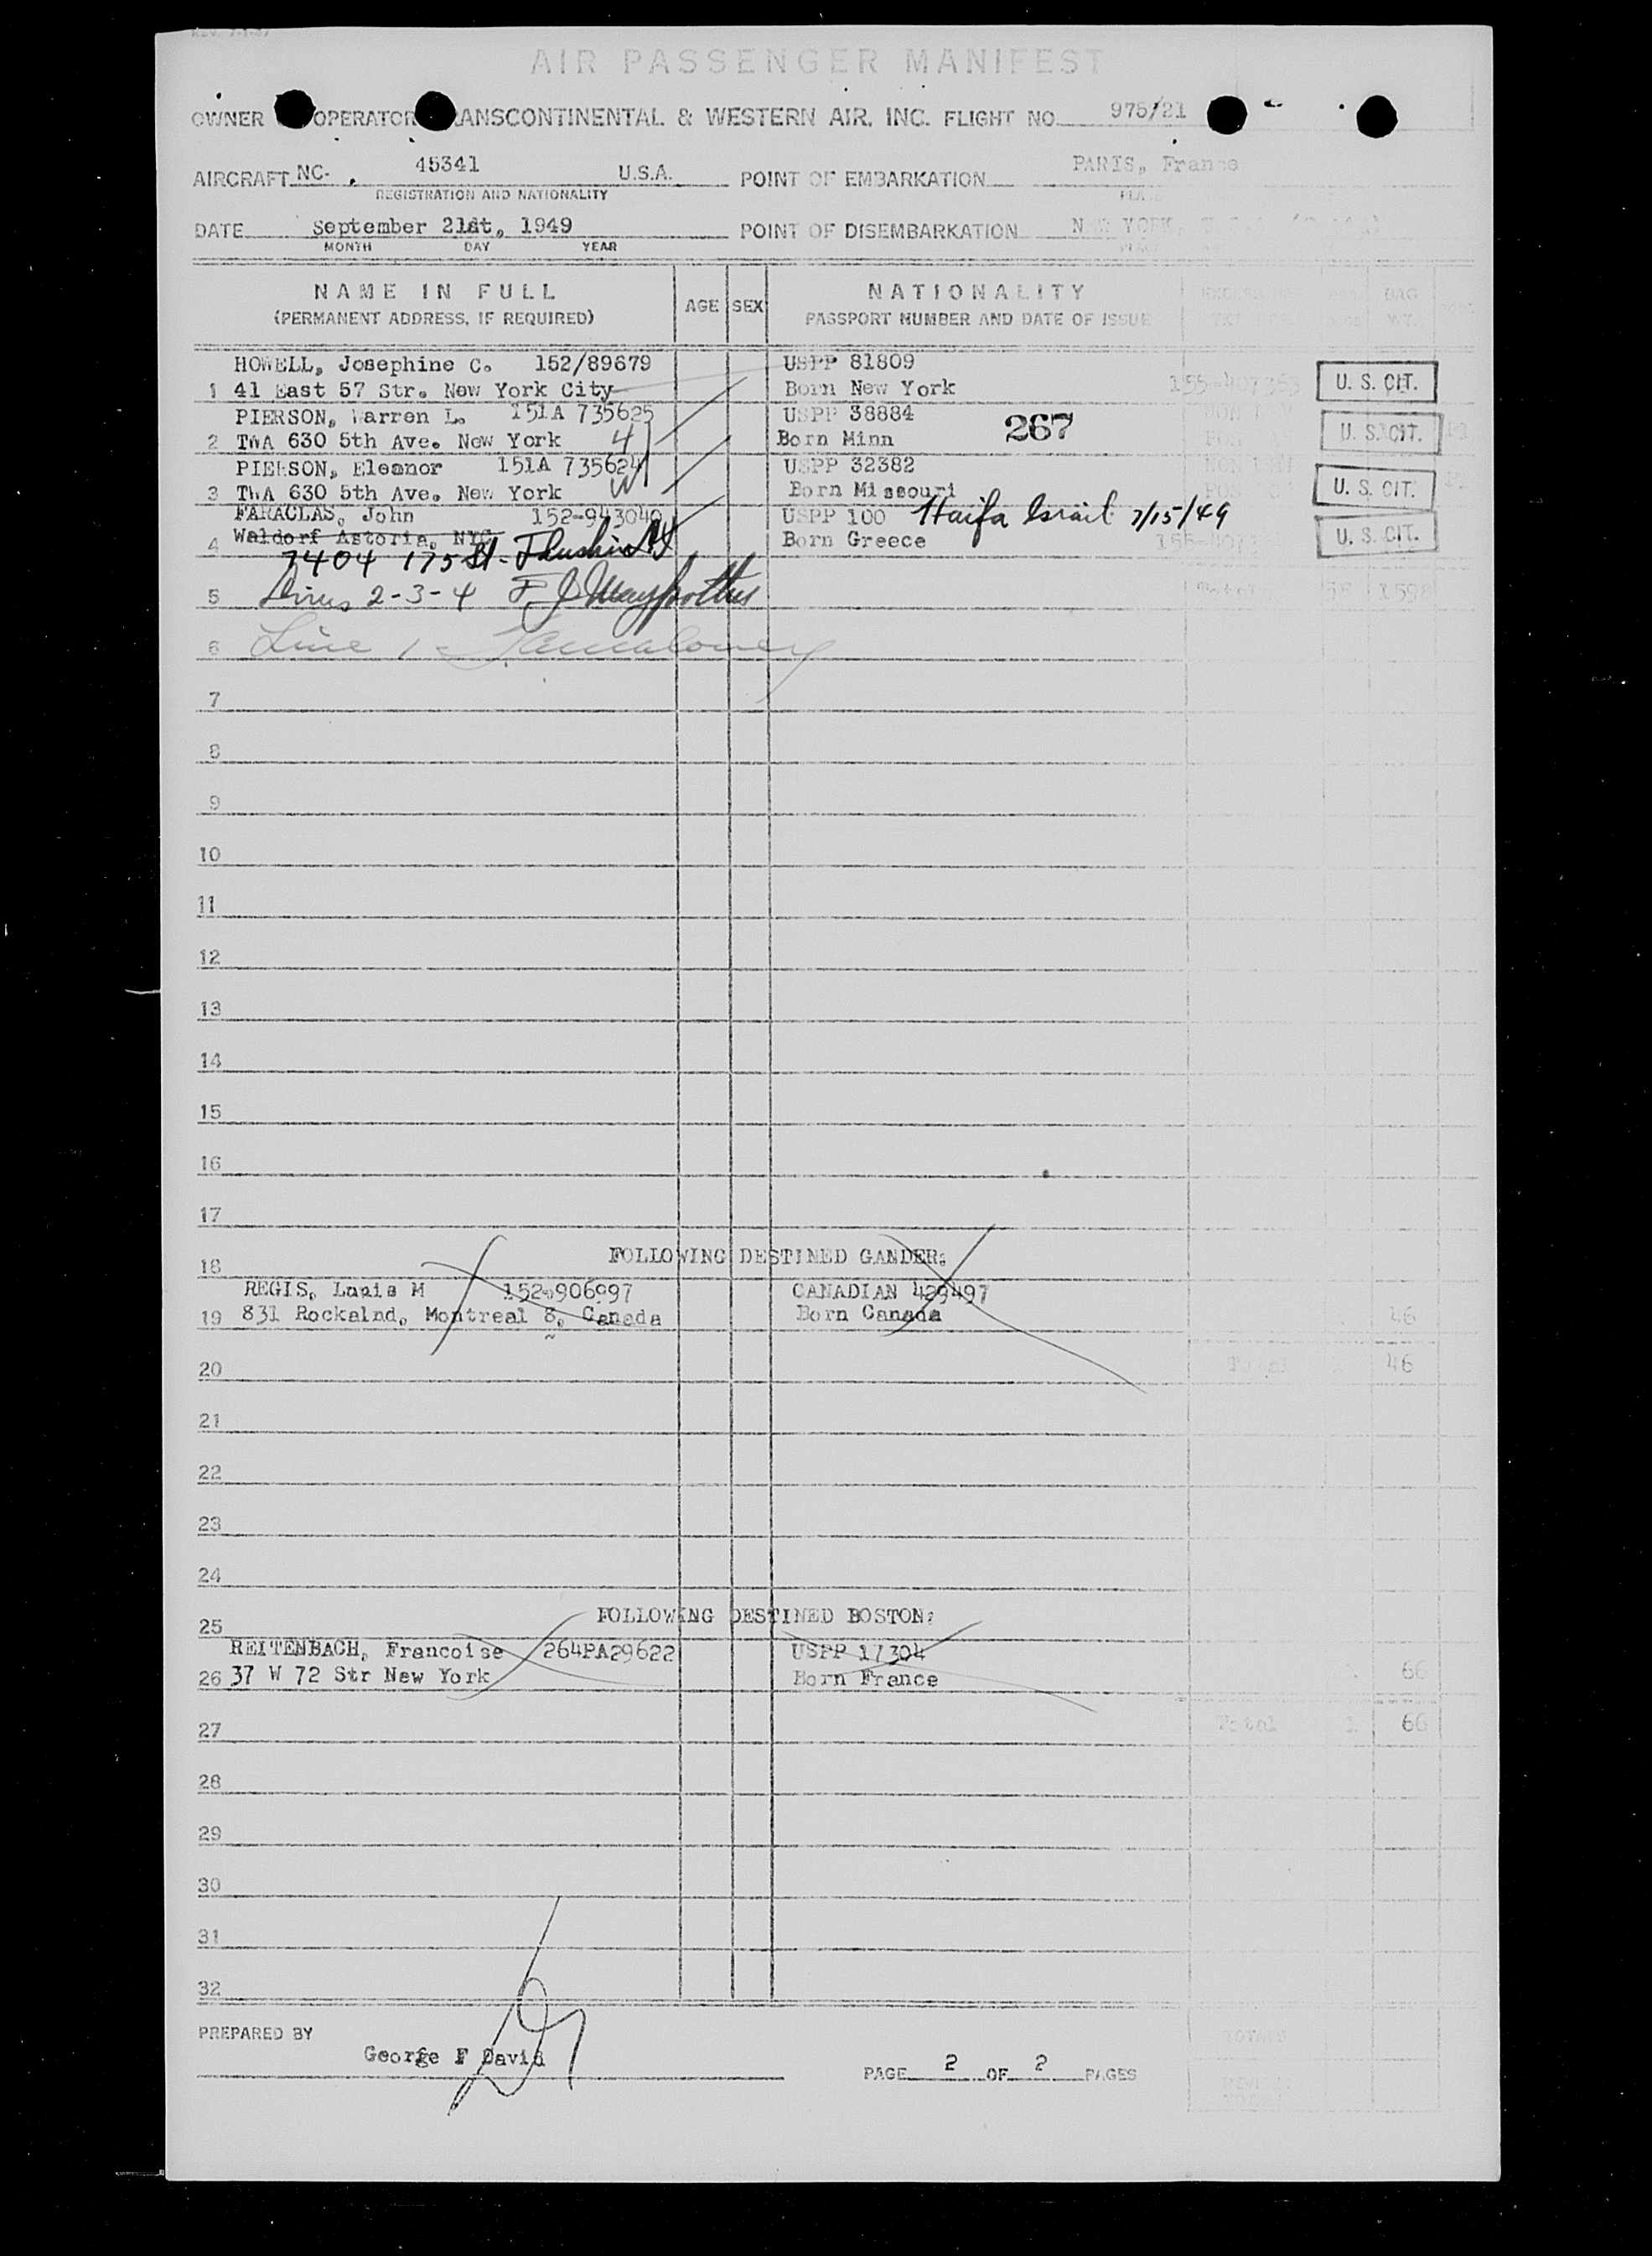 AIR PASSENGER MANIFEST
OWNER OPERATOR ANSCONTINENTAL & WESTERN AIR, INC. FLIGHT NO. 975/21
AIRCRAFT NC- 45341 U.S.A. POINT OF EMBARKATION PARIS, France
REGISTRATION AND NATIONALITY
DATE September 21st, 1949 POINT OF DISEMBARKATION NEW YORK
MONTH DAY YEAR
NAME IN FULL AGE SEX NATIONALITY
(PERMANENT ADDRESS, IF REQUIRED) PASSPORT NUMBER AND DATE OF ISSUE
HOWELL, Josephine C. 152/89679 USPP 81809
1 41 East 57 Str. New York City Born New York 155-407353 U. S. CIT.
PIERSON, Warren L. 151A 735625 USPP 38884
2 TWA 630 5th Ave. New York 4 Born Minn 267 U. S. CIT.
PIERSON, Eleanor 151A 735624 USPP 32382
3 TWA 630 5th Ave. New York W Born Missouri U. S. CIT.
FARACLAS, John 152-943040 USPP 100 Haifa Israil 7/15/49
4 Waldorf Astoria, NYC Born Greece U. S. CIT.
7404 175 St - Flushing NY
5 Lines 2-3-4
6 Line 1 -
7
8
9
10
11
12
13
14
15
16
17
18 FOLLOWING DESTINED GANDER:
REGIS, Louis M 152-906997 CANADIAN 429497
19 831 Rockalnd, Montreal 8, Canada Born Canada 46
20 Total 46
21
22
23
24
25 FOLLOWING DESTINED BOSTON:
REITENBACH, Francoise 264PA29622 USPP 17304
26 37 W 72 Str New York Born France 66
27 Total 1 66
28
29
30
31
32
PREPARED BY TOTALS
George F David
PAGE 2 OF 2 PAGES